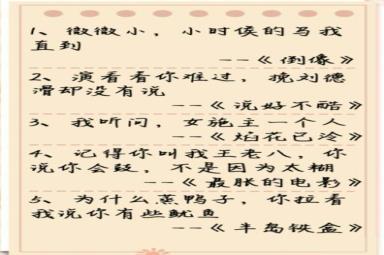 1、微微小，小时候的马我
直到
--《倒像》
2、演看看你难过，挽刘德
滑却没有说
--《说好不酷》
3、我听问，女施主一个人
--《焰花已冷》
4、记得你叫我王老八，你
说你会疑，不是因为太糊
--《最胀的电影》
5、为什么蒸鸭子，你拉看
我说你有些鱿鱼
--《半岛铁金》